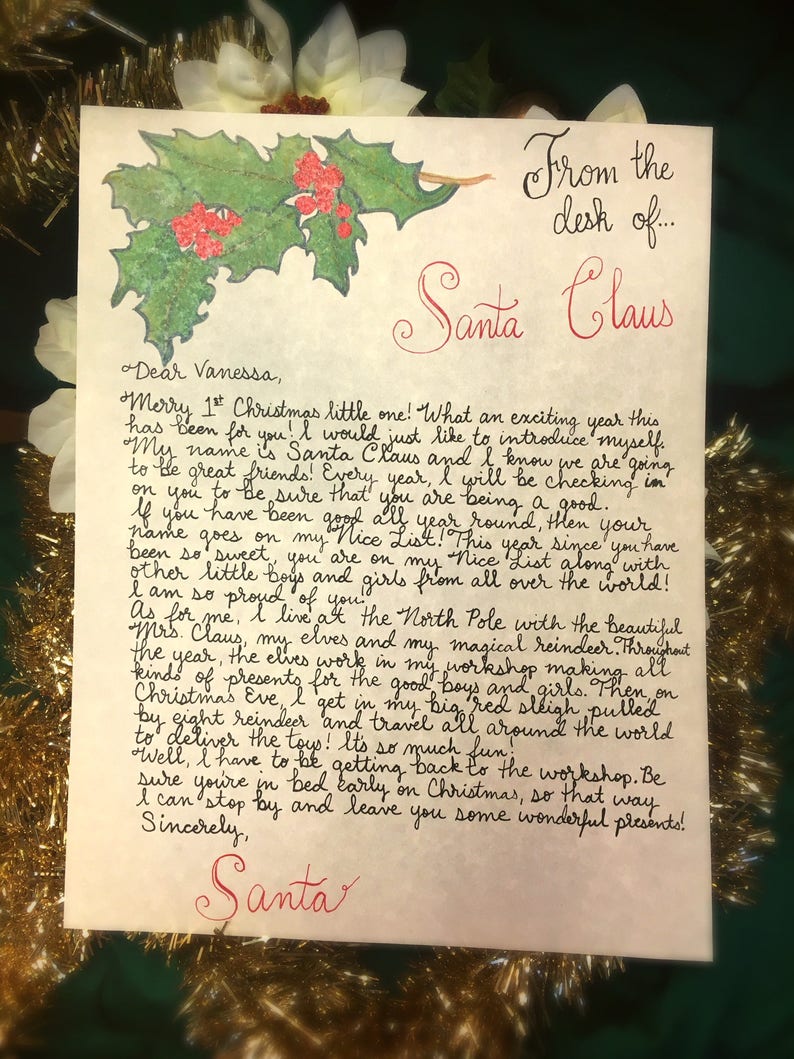 From the
desk of...
Santa Claus
Dear Vanessa,
Merry 1st Christmas little one! What an exciting year this
has been for you! I would just like to introduce myself.
My name is Santa Claus and I know we are going
to be great friends! Every year, I will be checking in
on you to be sure that you are being a good.
If you have been good all year round, then your
name goes on my Nice List! This year since you have
been so sweet, you are on my Nice List along with
other little boys and girls from all over the world!
I am so proud of you!
As for me, I live at the North Pole with the beautiful
Mrs. Claus, my elves and my magical reindeer. Throughout
the year, the elves work in my workshop making all
kinds of presents for the good boys and girls. Then on
Christmas Eve, I get in my big red sleigh pulled
by eight reindeer and travel all around the world
to deliver the toys! It's so much fun!
Well, I have to be getting back to the workshop. Be
sure you're in bed early on Christmas, so that way
I can stop by and leave you some wonderful presents!
Sincerely,
Santa